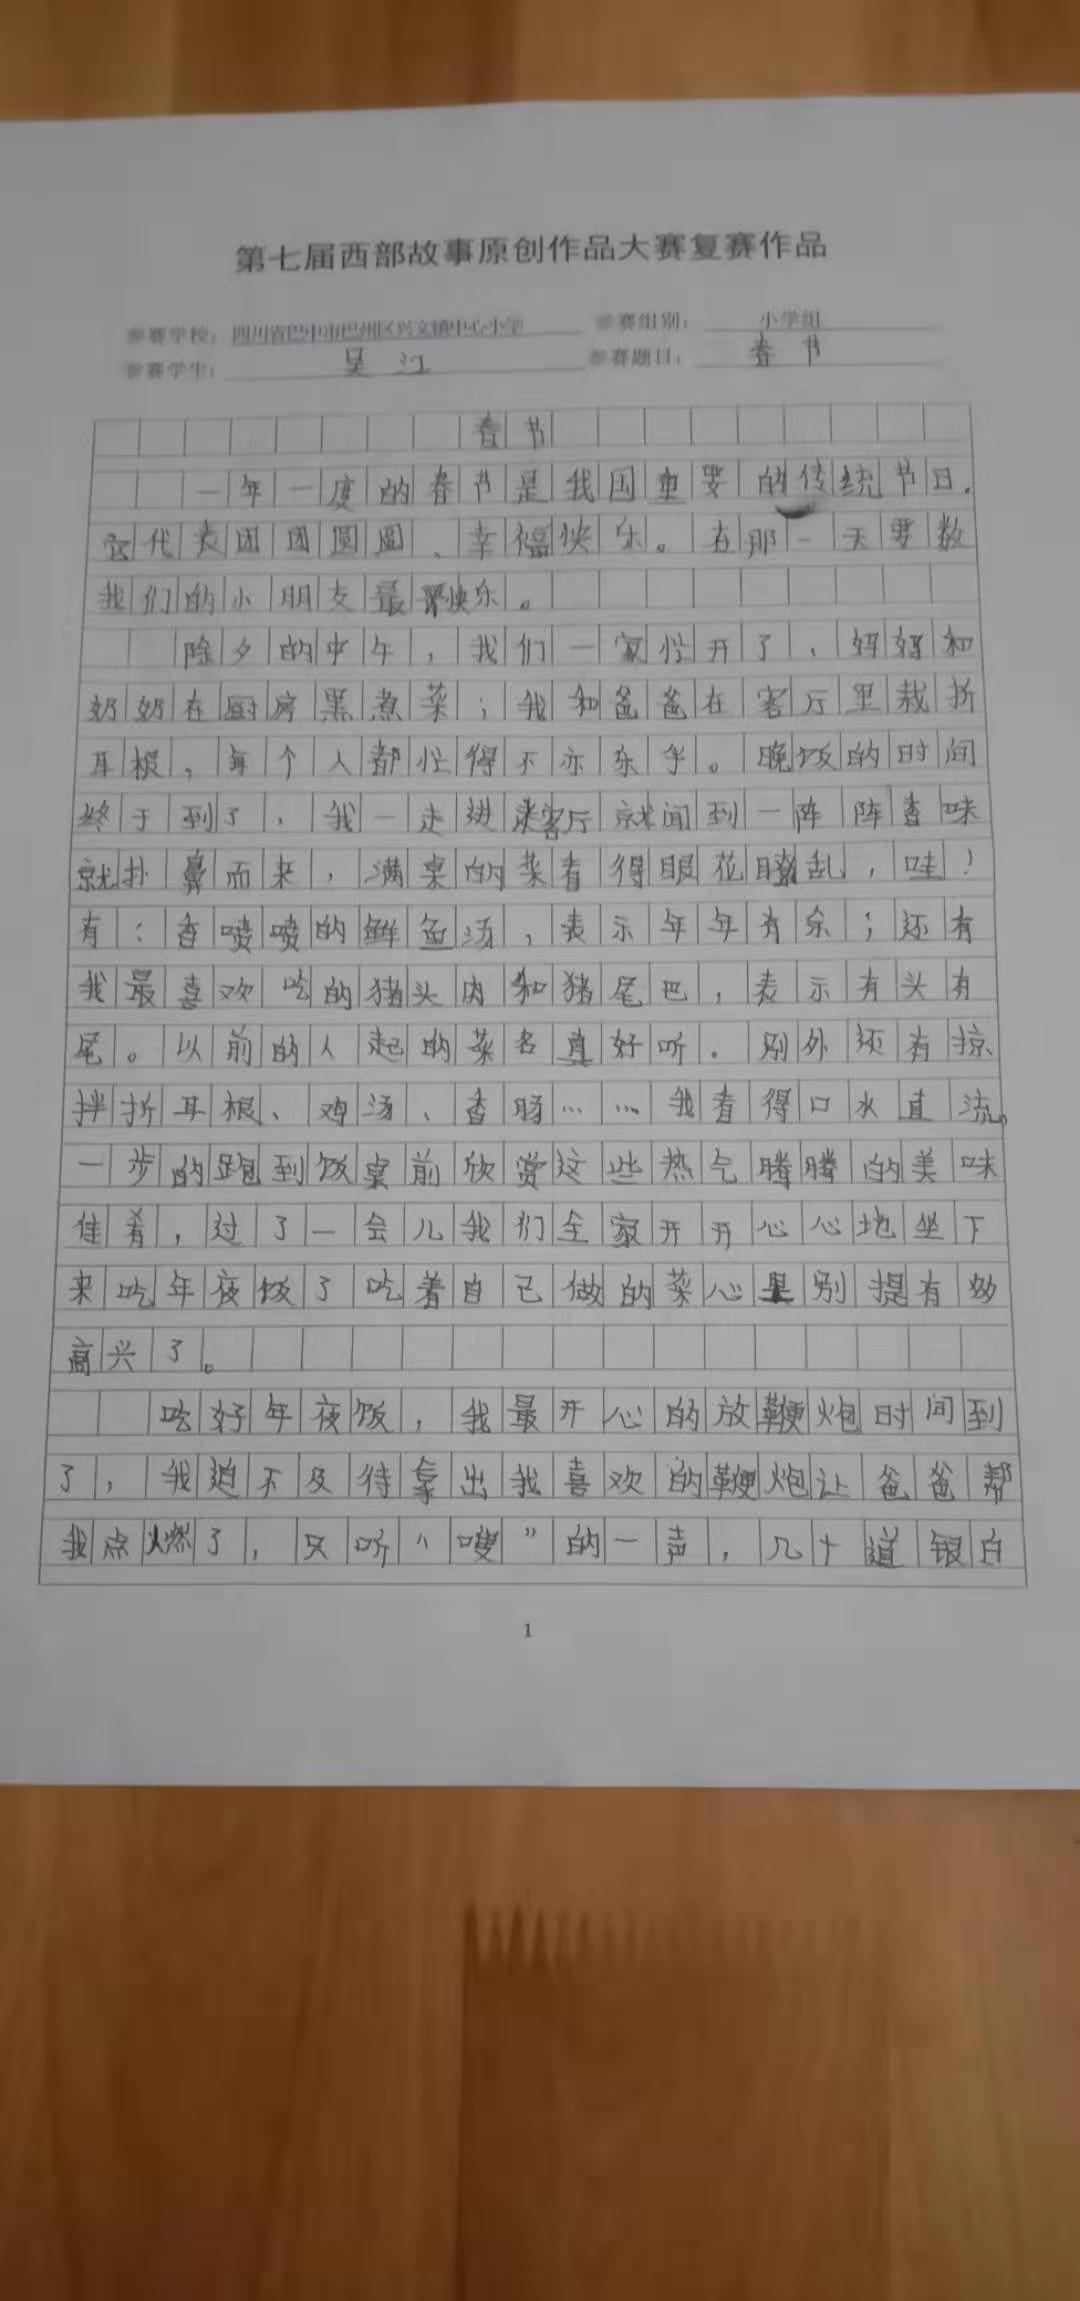 第七届西部故事原创作品大赛复赛作品
参赛学校：四川省巴中市巴州区兴文镇中心小学 参赛组别：小学组
参赛学生：吴江 参赛题目：春节
春节
一年一度的春节是我国重要的传统节日。
它代表团团圆圆、幸福快乐。在那一天要数
我们的小朋友最快乐。
除夕的中午，我们一家忙开了，妈妈和
奶奶在厨房里煮菜；我和爸爸在客厅里栽折
耳根，每个人都忙得不亦乐乎。晚饭的时间
终于到了，我一走进客厅就闻到一阵阵香味
就扑鼻而来，满桌的菜看得眼花瞭乱，哇！
有：香喷喷的鲜鱼汤，表示年年有余；还有
我最喜欢吃的猪头肉和猪尾巴，表示有头有
尾。以前的人起的菜名真好听。别外还有掠
拌折耳根、鸡汤、香肠……我看得口水直流，
一步的跑到饭桌前欣赏这些热气腾腾的美味
佳肴，过了一会儿我们全家开开心心地坐下
来吃年夜饭了吃着自己做的菜心里别提有多
高兴了。
吃好年夜饭，我最开心的放鞭炮时间到
了，我迫不及待拿出我喜欢的鞭炮让爸爸帮
我点燃了，只听“嗖”的一声，几十道银白
1